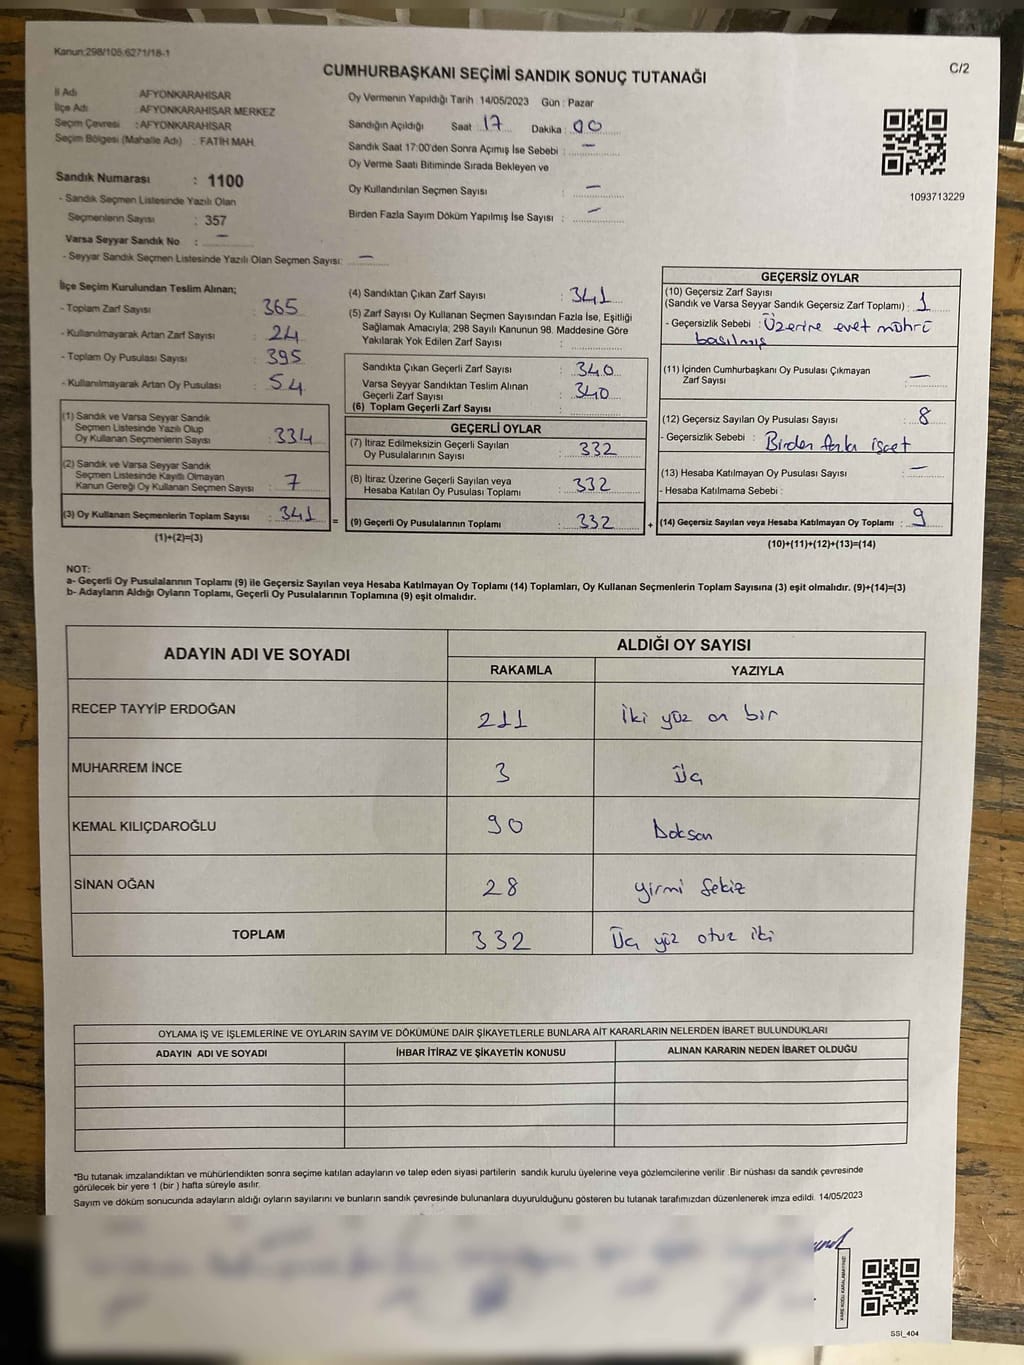 Kanun:298/105;6271/18-1
C/2
CUMHURBAŞKANI SEÇİMİ SANDIK SONUÇ TUTANAĞI
İl Adı : AFYONKARAHİSAR
İlçe Adı : AFYONKARAHİSAR MERKEZ
Seçim Çevresi : AFYONKARAHİSAR
Seçim Bölgesi (Mahalle Adı) : FATİH MAH.
Sandık Numarası : 1100
- Sandık Seçmen Listesinde Yazılı Olan
Seçmenlerin Sayısı : 357
Varsa Seyyar Sandık No : —
- Seyyar Sandık Seçmen Listesinde Yazılı Olan Seçmen Sayısı: —
Oy Vermenin Yapıldığı Tarih :14/05/2023 Gün : Pazar
Sandığın Açıldığı Saat : 17 Dakika : 00
Sandık Saat 17:00'den Sonra Açımış İse Sebebi : —
Oy Verme Saati Bitiminde Sırada Bekleyen ve
Oy Kullandırılan Seçmen Sayısı : —
Birden Fazla Sayım Döküm Yapılmış İse Sayısı : —
1093713229
İlçe Seçim Kurulundan Teslim Alınan;
- Toplam Zarf Sayısı : 365
- Kullanılmayarak Artan Zarf Sayısı : 24
- Toplam Oy Pusulası Sayısı : 395
- Kullanılmayarak Artan Oy Pusulası : 54
(1) Sandık ve Varsa Seyyar Sandık
Seçmen Listesinde Yazılı Olup
Oy Kullanan Seçmenlerin Sayısı : 334
(2) Sandık ve Varsa Seyyar Sandık
Seçmen Listesinde Kayıtlı Olmayan
Kanun Gereği Oy Kullanan Seçmen Sayısı : 7
(3) Oy Kullanan Seçmenlerin Toplam Sayısı : 341 =
(1)+(2)=(3)
(4) Sandıktan Çıkan Zarf Sayısı : 341
(5) Zarf Sayısı Oy Kullanan Seçmen Sayısından Fazla İse, Eşitliği
Sağlamak Amacıyla; 298 Sayılı Kanunun 98. Maddesine Göre
Yakılarak Yok Edilen Zarf Sayısı :
Sandıkta Çıkan Geçerli Zarf Sayısı : 340
Varsa Seyyar Sandıktan Teslim Alınan
Geçerli Zarf Sayısı : 340
(6) Toplam Geçerli Zarf Sayısı :
GEÇERLİ OYLAR
(7) İtiraz Edilmeksizin Geçerli Sayılan
Oy Pusulalarının Sayısı : 332
(8) İtiraz Üzerine Geçerli Sayılan veya
Hesaba Katılan Oy Pusulası Toplamı : 332
(9) Geçerli Oy Pusulalarının Toplamı : 332 +
GEÇERSİZ OYLAR
(10) Geçersiz Zarf Sayısı
(Sandık ve Varsa Seyyar Sandık Geçersiz Zarf Toplamı) : 1
- Geçersizlik Sebebi : Üzerine evet mührü
basılmış
(11) İçinden Cumhurbaşkanı Oy Pusulası Çıkmayan
Zarf Sayısı : —
(12) Geçersiz Sayılan Oy Pusulası Sayısı : 8
- Geçersizlik Sebebi : Birden fazla işaret
(13) Hesaba Katılmayan Oy Pusulası Sayısı : —
- Hesaba Katılmama Sebebi :
(14) Geçersiz Sayılan veya Hesaba Katılmayan Oy Toplamı : 9
(10)+(11)+(12)+(13)=(14)
NOT:
a- Geçerli Oy Pusulalarının Toplamı (9) ile Geçersiz Sayılan veya Hesaba Katılmayan Oy Toplamı (14) Toplamları, Oy Kullanan Seçmenlerin Toplam Sayısına (3) eşit olmalıdır. (9)+(14)=(3)
b- Adayların Aldığı Oyların Toplamı, Geçerli Oy Pusulalarının Toplamına (9) eşit olmalıdır.
ADAYIN ADI VE SOYADI ALDIĞI OY SAYISI
RAKAMLA YAZIYLA
RECEP TAYYİP ERDOĞAN 211 İki yüz on bir
MUHARREM İNCE 3 Üç
KEMAL KILIÇDAROĞLU 90 Doksan
SİNAN OĞAN 28 yirmi sekiz
TOPLAM 332 Üç yüz otuz iki
OYLAMA İŞ VE İŞLEMLERİNE VE OYLARIN SAYIM VE DÖKÜMÜNE DAİR ŞİKAYETLERLE BUNLARA AİT KARARLARIN NELERDEN İBARET BULUNDUKLARI
ADAYIN ADI VE SOYADI İHBAR İTİRAZ VE ŞİKAYETİN KONUSU ALINAN KARARIN NEDEN İBARET OLDUĞU
*Bu tutanak imzalandıktan ve mühürlendikten sonra seçime katılan adayların ve talep eden siyasi partilerin sandık kurulu üyelerine veya gözlemcilerine verilir. Bir nüshası da sandık çevresinde
görülecek bir yere 1 (bir ) hafta süreyle asılır.
Sayım ve döküm sonucunda adayların aldığı oyların sayılarını ve bunların sandık çevresinde bulunanlara duyurulduğunu gösteren bu tutanak tarafımızdan düzenlenerek imza edildi. 14/05/2023
SSI_404